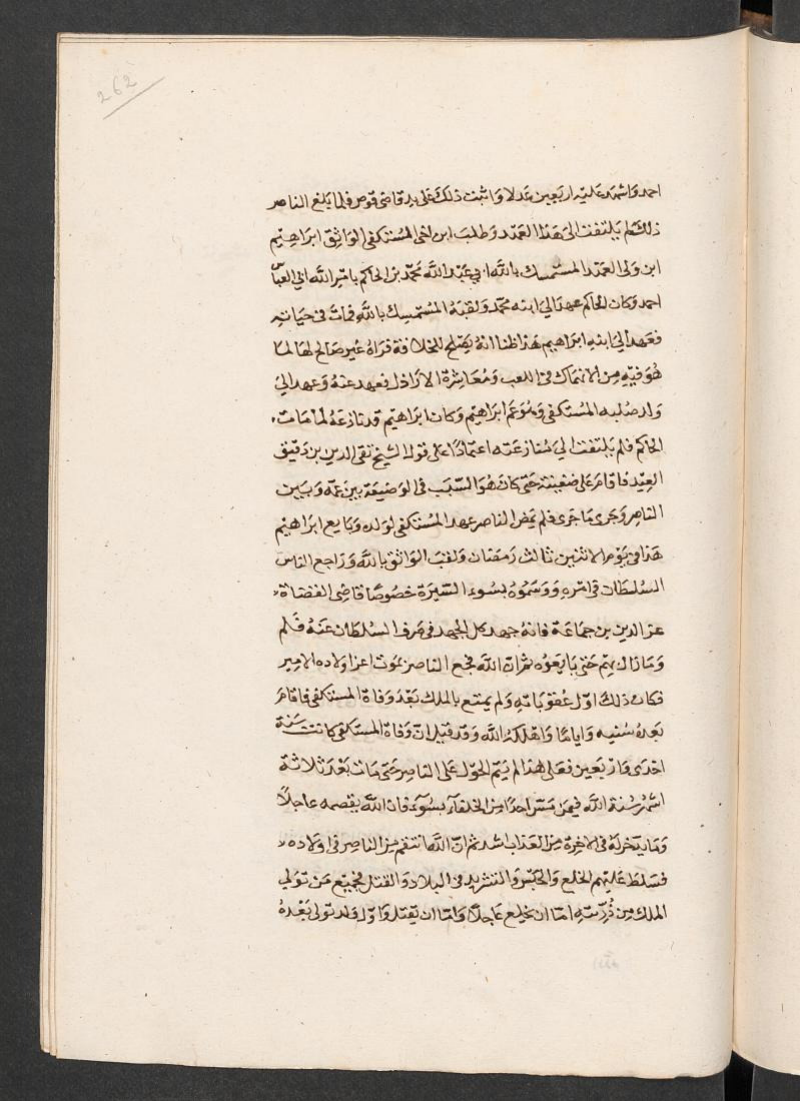 262
احمد واشهد عليه اربعين عدلا واثبت ذلك على يد قاضى قوص فلما بلغ الناصر
ذلك لم يلتفت الى هذا العهد وطلب ابن اخى المستكفى الواثق ابراهيم
ابن ولى العهد المستمسك بالله ابي عبد الله محمد بن الحاكم بامر الله ابي العباس
احمد وكان الحاكم عهد الى ابنه محمد ولقبه المستمسك بالله فمات فى حياته
فعهد الى ابنه ابراهيم هذا ظنا انه يصلح للخلافة فراه غير صالح لها لما
هو فيه من الانهماك فى اللعب ومعاشرة الاراذل فعهد عنه وعهد الى
ولد صلبه المستكفى وهو عم ابراهيم وكان ابراهيم قد نازعه لما مات
الحاكم فلم يلتفت الى منازعته اعتمادا على قول الشيخ تقى الدين بن دقيق
العيد فاقام على ضغينة حتى كان هو السبب فى الوضيعة بين عمه وبين
الناصر وجرى ما جرى فلم يمض الناصر عهد المستكفى لولده وبايع ابراهيم
هذا فى يوم الاثنين ثالث رمضان ولقب الواثق بالله وراجع الناس
السلطان فى امره ووسموه بسوء السيرة خصوصا قاضى القضاة
عز الدين بن جماعة فانه جهد كل الجهد فى صرف السلطان عنه فلم
وما زال بهم حتى بايعوه ثم ان الله فجع الناصر بموت اعز اولاده الامير
فكان ذلك اول عقوباته ولم يمتع بالملك بعد وفاة المستكفى فاقام
بعده سنيه واياما واهلكه الله وقد قيل ان وفاة المستكفى كانت سنة
احدى واربعين فعلى هذا لم يتم الحول على الناصر حتى مات بعد ثلاثة
اشهر سنة الله فيمن مس احدا من الخلفاء بسوء فان الله يقصمه عاجلا
وما يدخر له فى الاخرة من العذاب اشد ثم ان الله انتقم من الناصر فى اولاده
فسلط عليهم الخلع والحبس والتشريد فى البلاد والقتل فجميع من تولى
الملك من ذريته اما ان يخلع عاجلا واما ان يقتل واول ولد تولى بعده